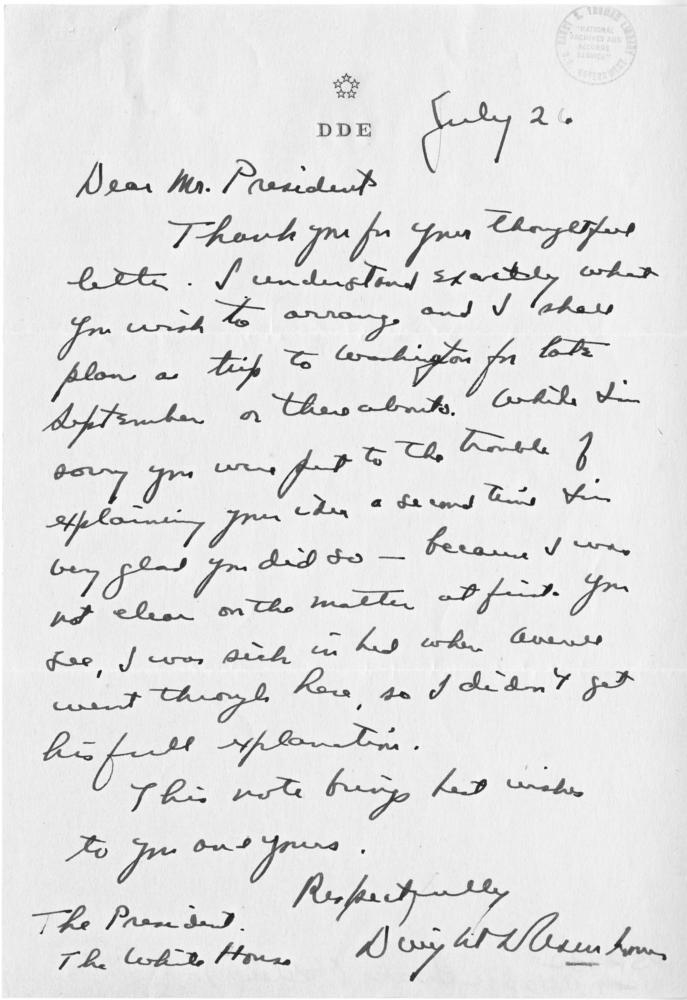 HARRY S. TRUMAN LIBRARY
"NATIONAL
ARCHIVES AND
RECORDS
SERVICE"
DDE
July 26
Dear Mr. President
Thank you for your thoughtful
letter. I understand exactly what
you wish to arrange and I shall
plan a trip to Washington for late
September or thereabouts. While I'm
sorry you were put to the trouble of
explaining your idea a second time I'm
very glad you did so — because I was
not clear on the matter at first. You
see, I was sick in bed when Averell
went through here, so I didn't get
his full explanation.
This note brings best wishes
to you and yours.
Respectfully
Dwight D Eisenhower
The President.
The White House